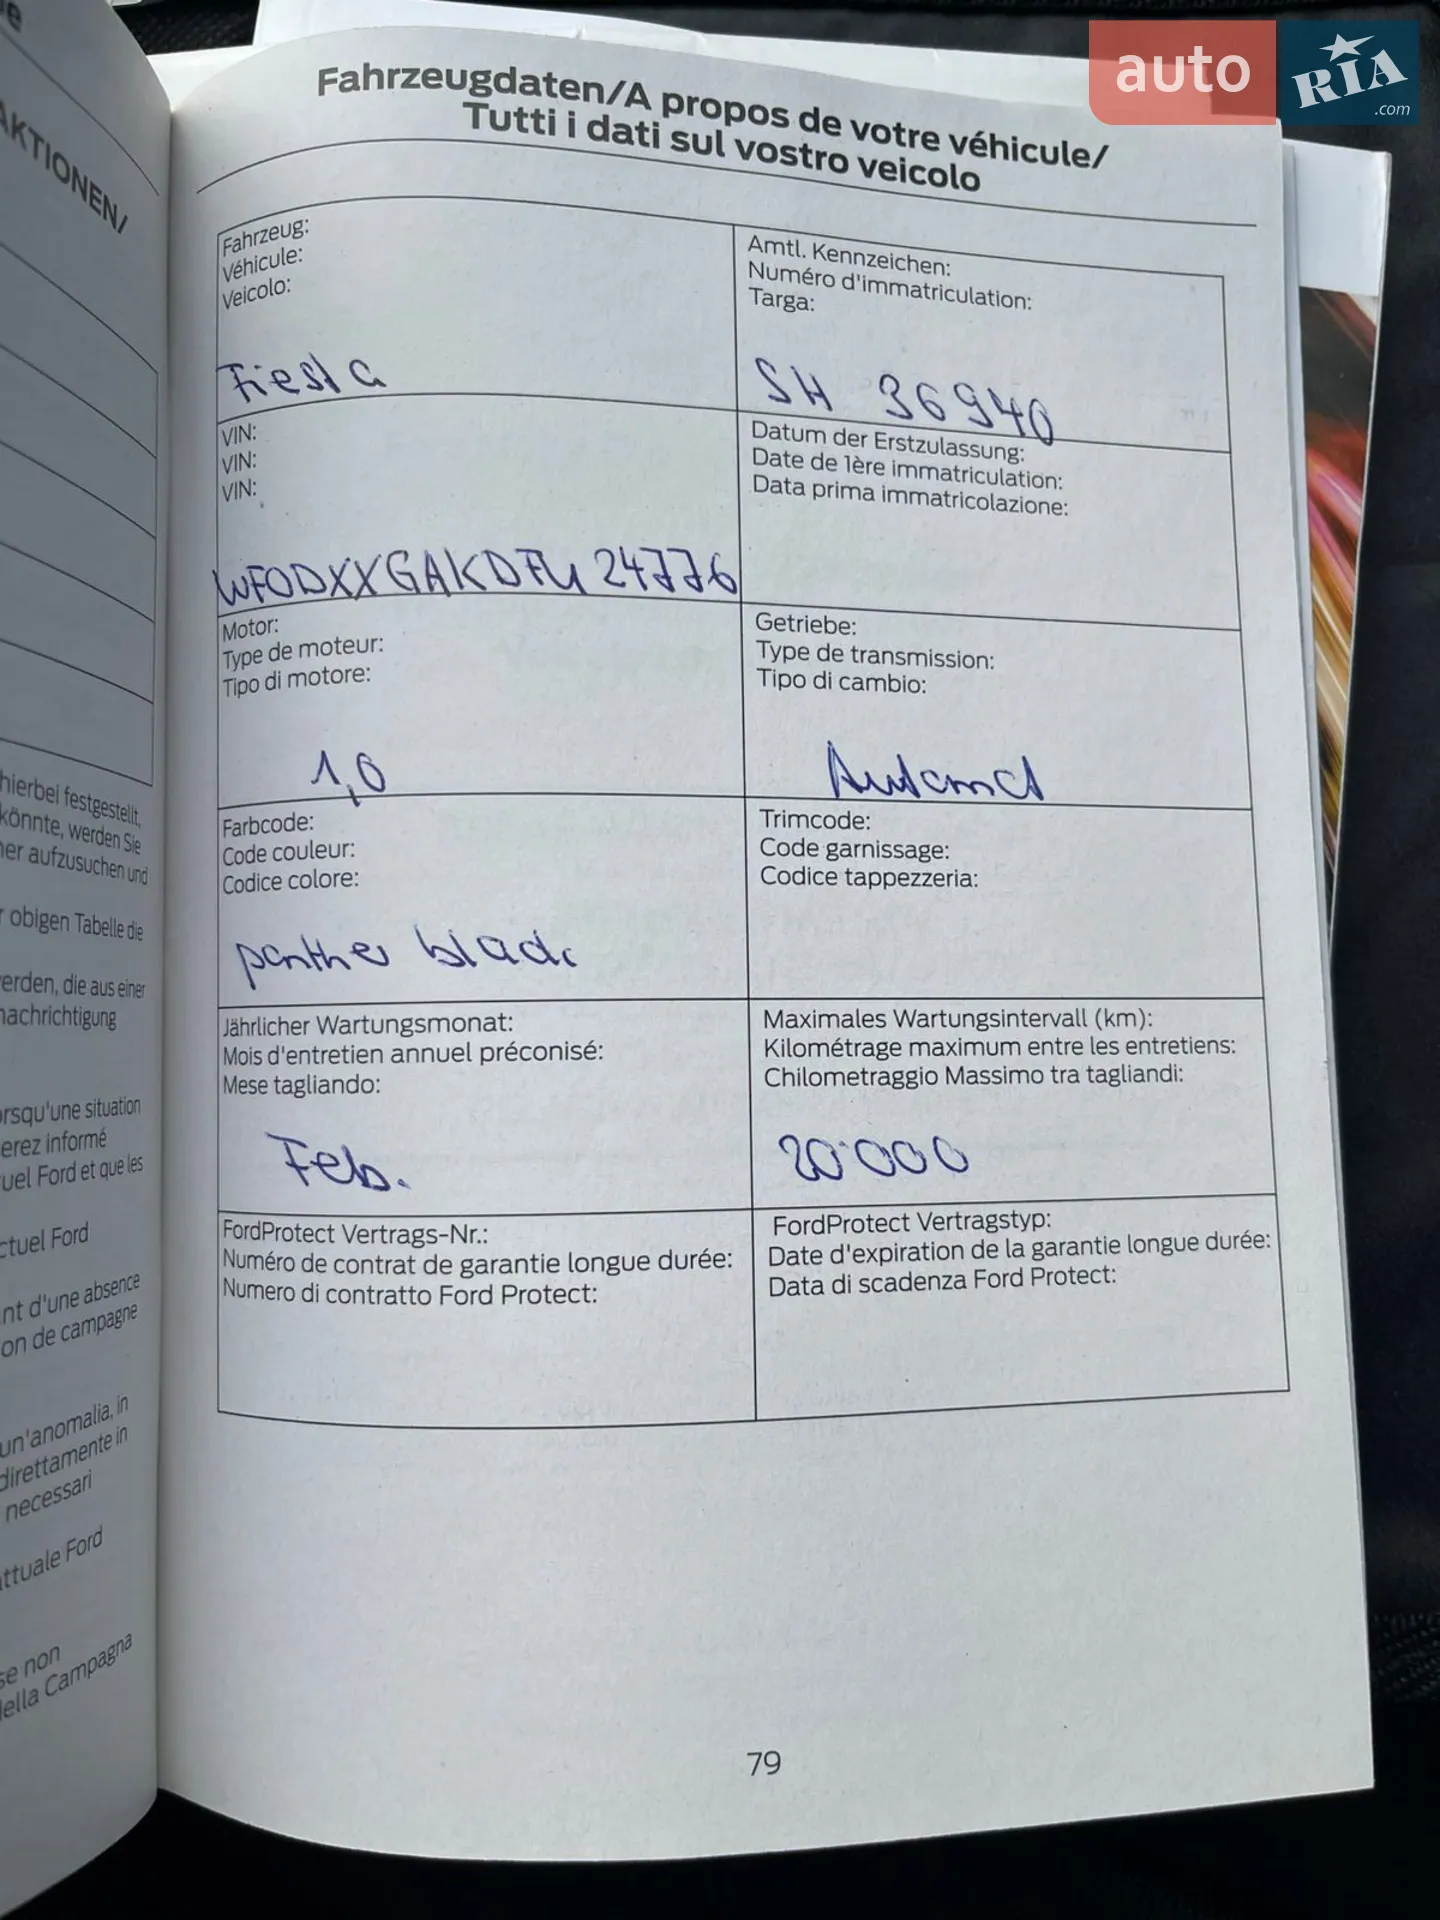 auto RIA .com
AKTIONEN/
Fahrzeugdaten/A propos de votre véhicule/
Tutti i dati sul vostro veicolo
Fahrzeug:
Véhicule:
Veicolo:
Fiesta
Amtl. Kennzeichen:
Numéro d'immatriculation:
Targa:
SH 36940
VIN:
VIN:
VIN:
WF0DXXGAKDFU24776
Datum der Erstzulassung:
Date de 1ère immatriculation:
Data prima immatricolazione:
Motor:
Type de moteur:
Tipo di motore:
1,0
Getriebe:
Type de transmission:
Tipo di cambio:
Automat
Farbcode:
Code couleur:
Codice colore:
panther black
Trimcode:
Code garnissage:
Codice tappezzeria:
Jährlicher Wartungsmonat:
Mois d'entretien annuel préconisé:
Mese tagliando:
Feb.
Maximales Wartungsintervall (km):
Kilométrage maximum entre les entretiens:
Chilometraggio Massimo tra tagliandi:
20'000
FordProtect Vertrags-Nr.:
Numéro de contrat de garantie longue durée:
Numero di contratto Ford Protect:
FordProtect Vertragstyp:
Date d'expiration de la garantie longue durée:
Data di scadenza Ford Protect:
79
hierbei festgestellt,
könnte, werden Sie
aufzusuchen und
obigen Tabelle die
werden, die aus einer
nachrichtigung
lorsqu'une situation
serez informé
Ford et que les
Ford
d'une absence
de campagne
un'anomalia, in
direttamente in
necessari
attuale Ford
se non
della Campagna